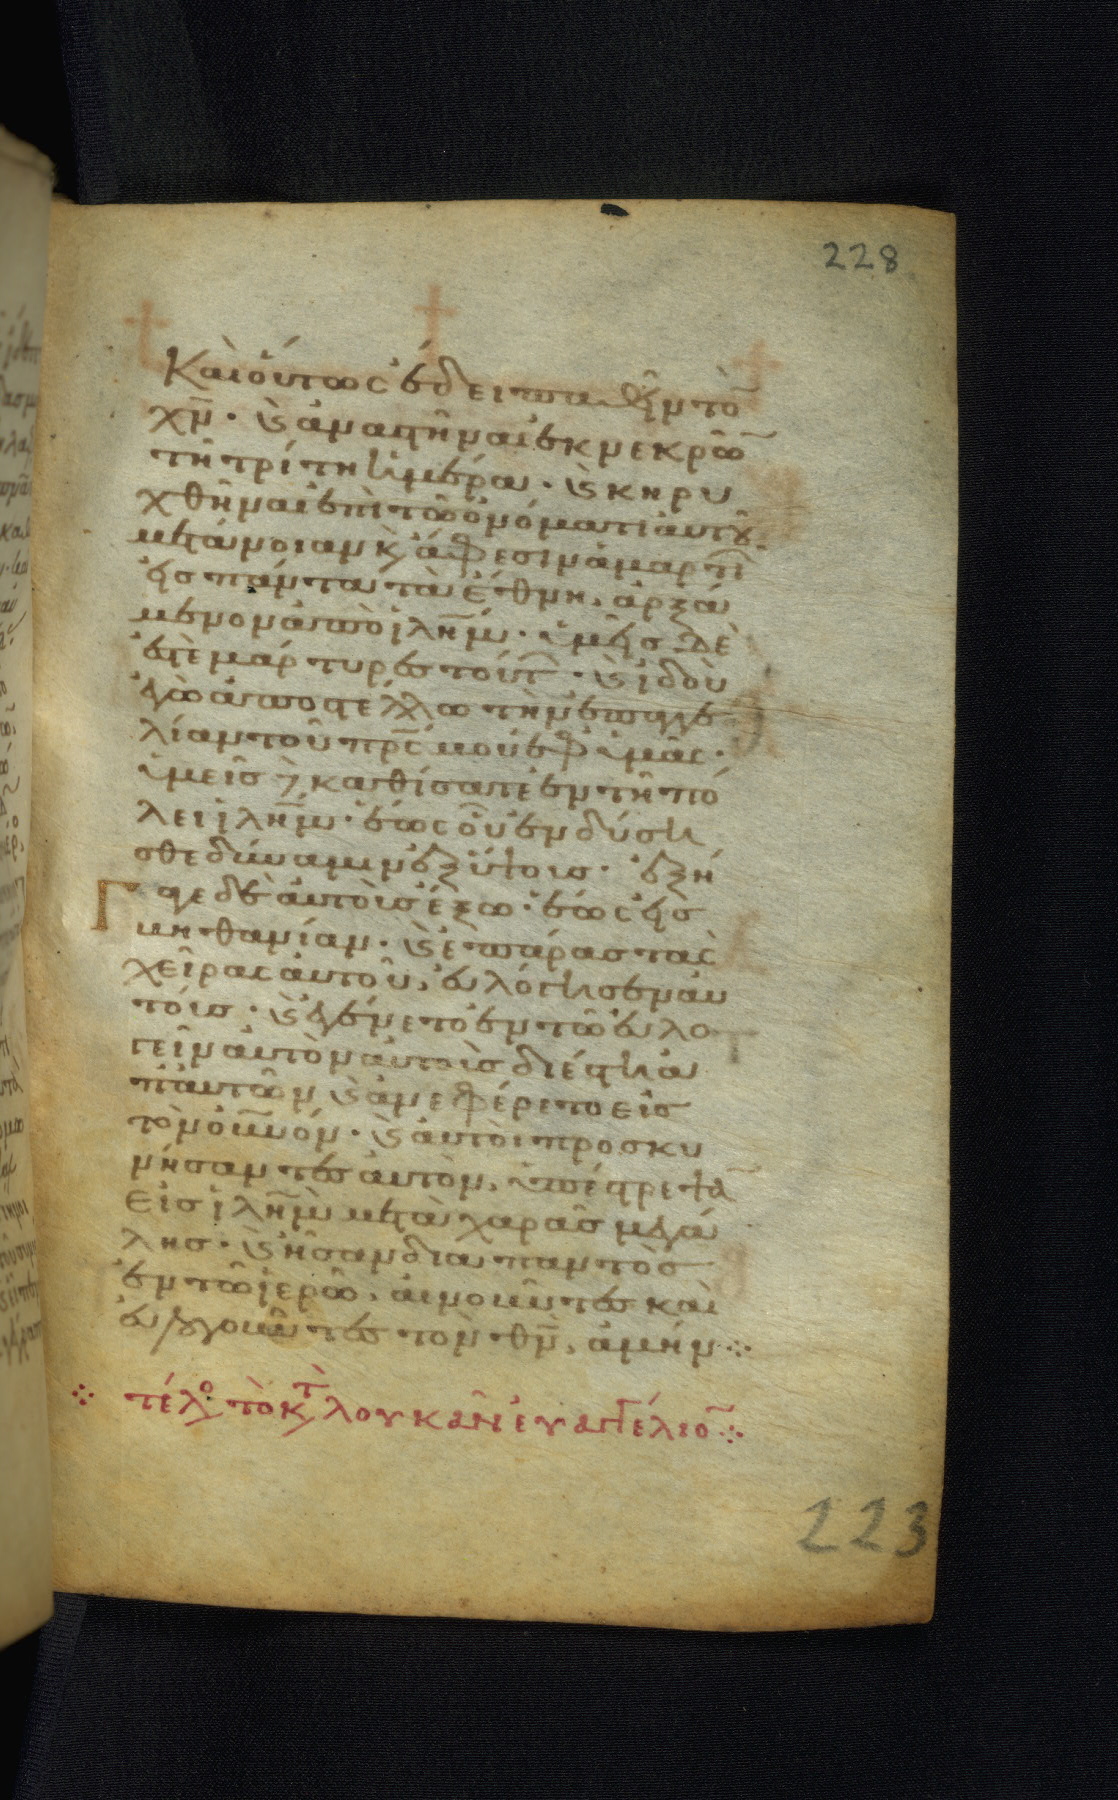 228
Και ὁύτως ἔδει παθεῖν τὸ
χν̅· καὶ ἀναστῆναι ἐκ νεκρῶ
τῆ τρίτη ἡμέρα· καὶ κηρυ
χθῆναι ἐπὶ τῶ ὀνόματι ἀυτοῦ
μετάνοιαν κ̀ ἄφεσιν ἁμαρτι
εἰς πάντα τὰ ἔθνη, ἀρξά
μενον ἀπὸ ἱλη̅μ· ὑμεῖς δὲ
ἐστὲ μάρτυρες τούτ· καὶ ἰδοὺ
ἐγὼ ἀποστέλλω τὴν ἐπαγγε
λίαν τοῦ πρ̅ς μου ἐφ ὑμᾶς·
ὑμεῖς δὲ καθίσατε ἐν τῆ πό
λει ἱλη̅μ· ἕως οὗ ἐνδύση
σθε δύναμιν ἐξ ὕψοις· ἐξή
Γ γε δὲ ἀυτοὺς ἔξω· ἕως εἰς
βηθανίαν· καὶ ἐπάρας τὰς
χεῖρας ἀυτοῦ, ἐυλόγησεν ἀυ
τούς· καὶ ἐγένετο ἐν τῶ ἐυλο
γεῖν ἀυτὸν ἀυτοὺς διέστη ἀ
π ἀυτῶν καὶ ἀνεφέρετο εἰς
τὸν ὀυ̅νόν· καὶ ἀυτοὶ προσκυ
νήσαντες ἀυτὸν, ὑπέστρεψα
εἰς ἱλη̅μ μετὰ χαρᾶς μεγά
λης· καὶ ἦσαν δια παντὸς
ἐν τῶ ἱερῶ, αἰνοῦντες καὶ
ἐυλογοῦντες τὸν θν̅, ἀμήν
τέλο τὸ κτ̀ λουκᾶν ἐυαγγέλιο
223